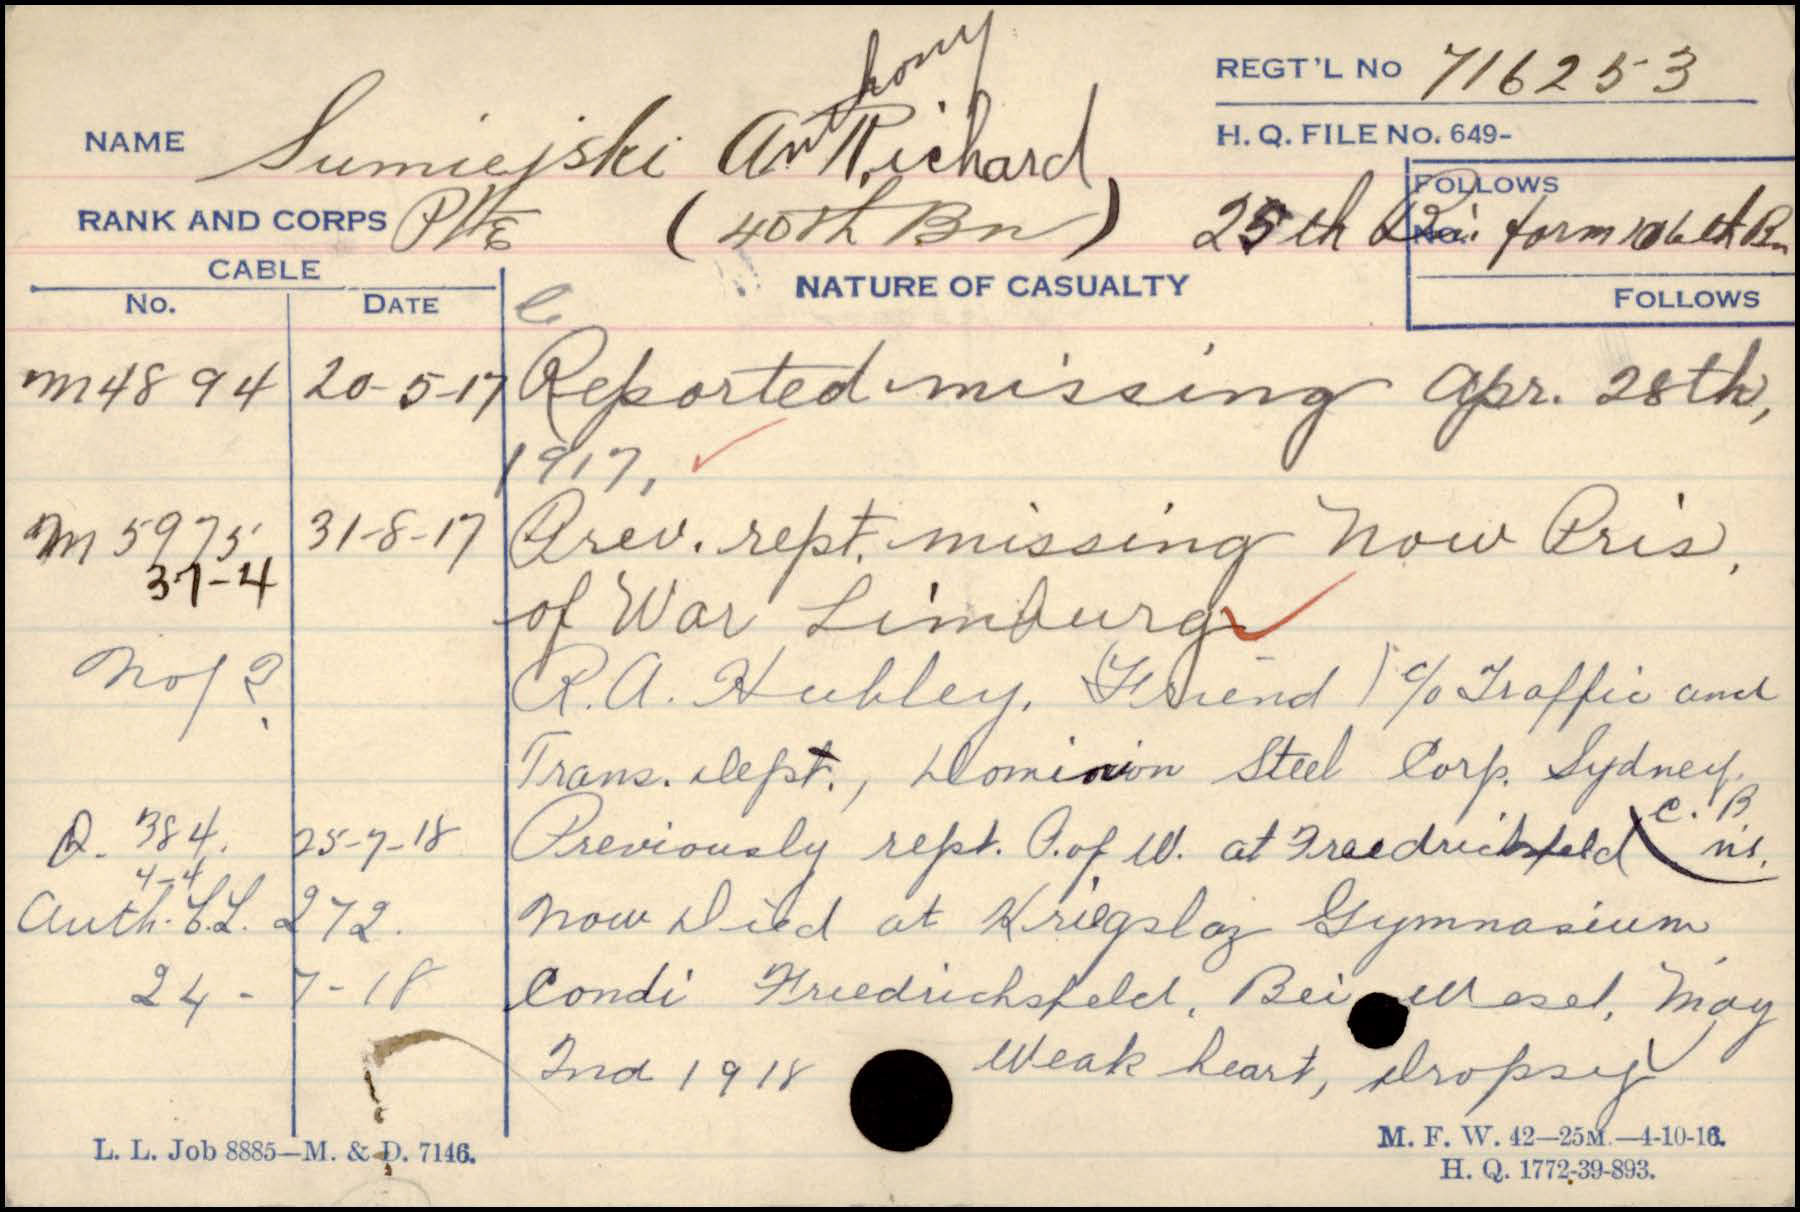 REGT'L No 716253
NAME Sumiejski Anthony Richard
H. Q. FILE No. 649-
FOLLOWS
No.
RANK AND CORPS Pte (40th Bn) 25th Bn. form 106th Bn
CABLE
No. DATE
NATURE OF CASUALTY
FOLLOWS
M4894 20-5-17 Reported missing Apr. 28th,
1917,
M5975 31-8-17 Prev. rept. missing now Pris.
37-4
of War Limburg
Nof ? R. A. Hubley, (Friend) c/o Traffic and
Trans. Dept., Dominion Steel Corp. Sydney.
C. B
Q. 384. 25-7-18 Previously rept. P. of W. at Friedrichsfeld N.S.
4-4
Auth. C.L. 272. Now Died at Kriegslaz Gymnasium
24-7-18 Condi Friedrichsfeld, Bei Wesel, May
2nd 1918 Weak heart, Dropsy
L. L. Job 8885—M. & D. 7146.
M. F. W. 42—25M.—4-10-16.
H. Q. 1772-39-893.